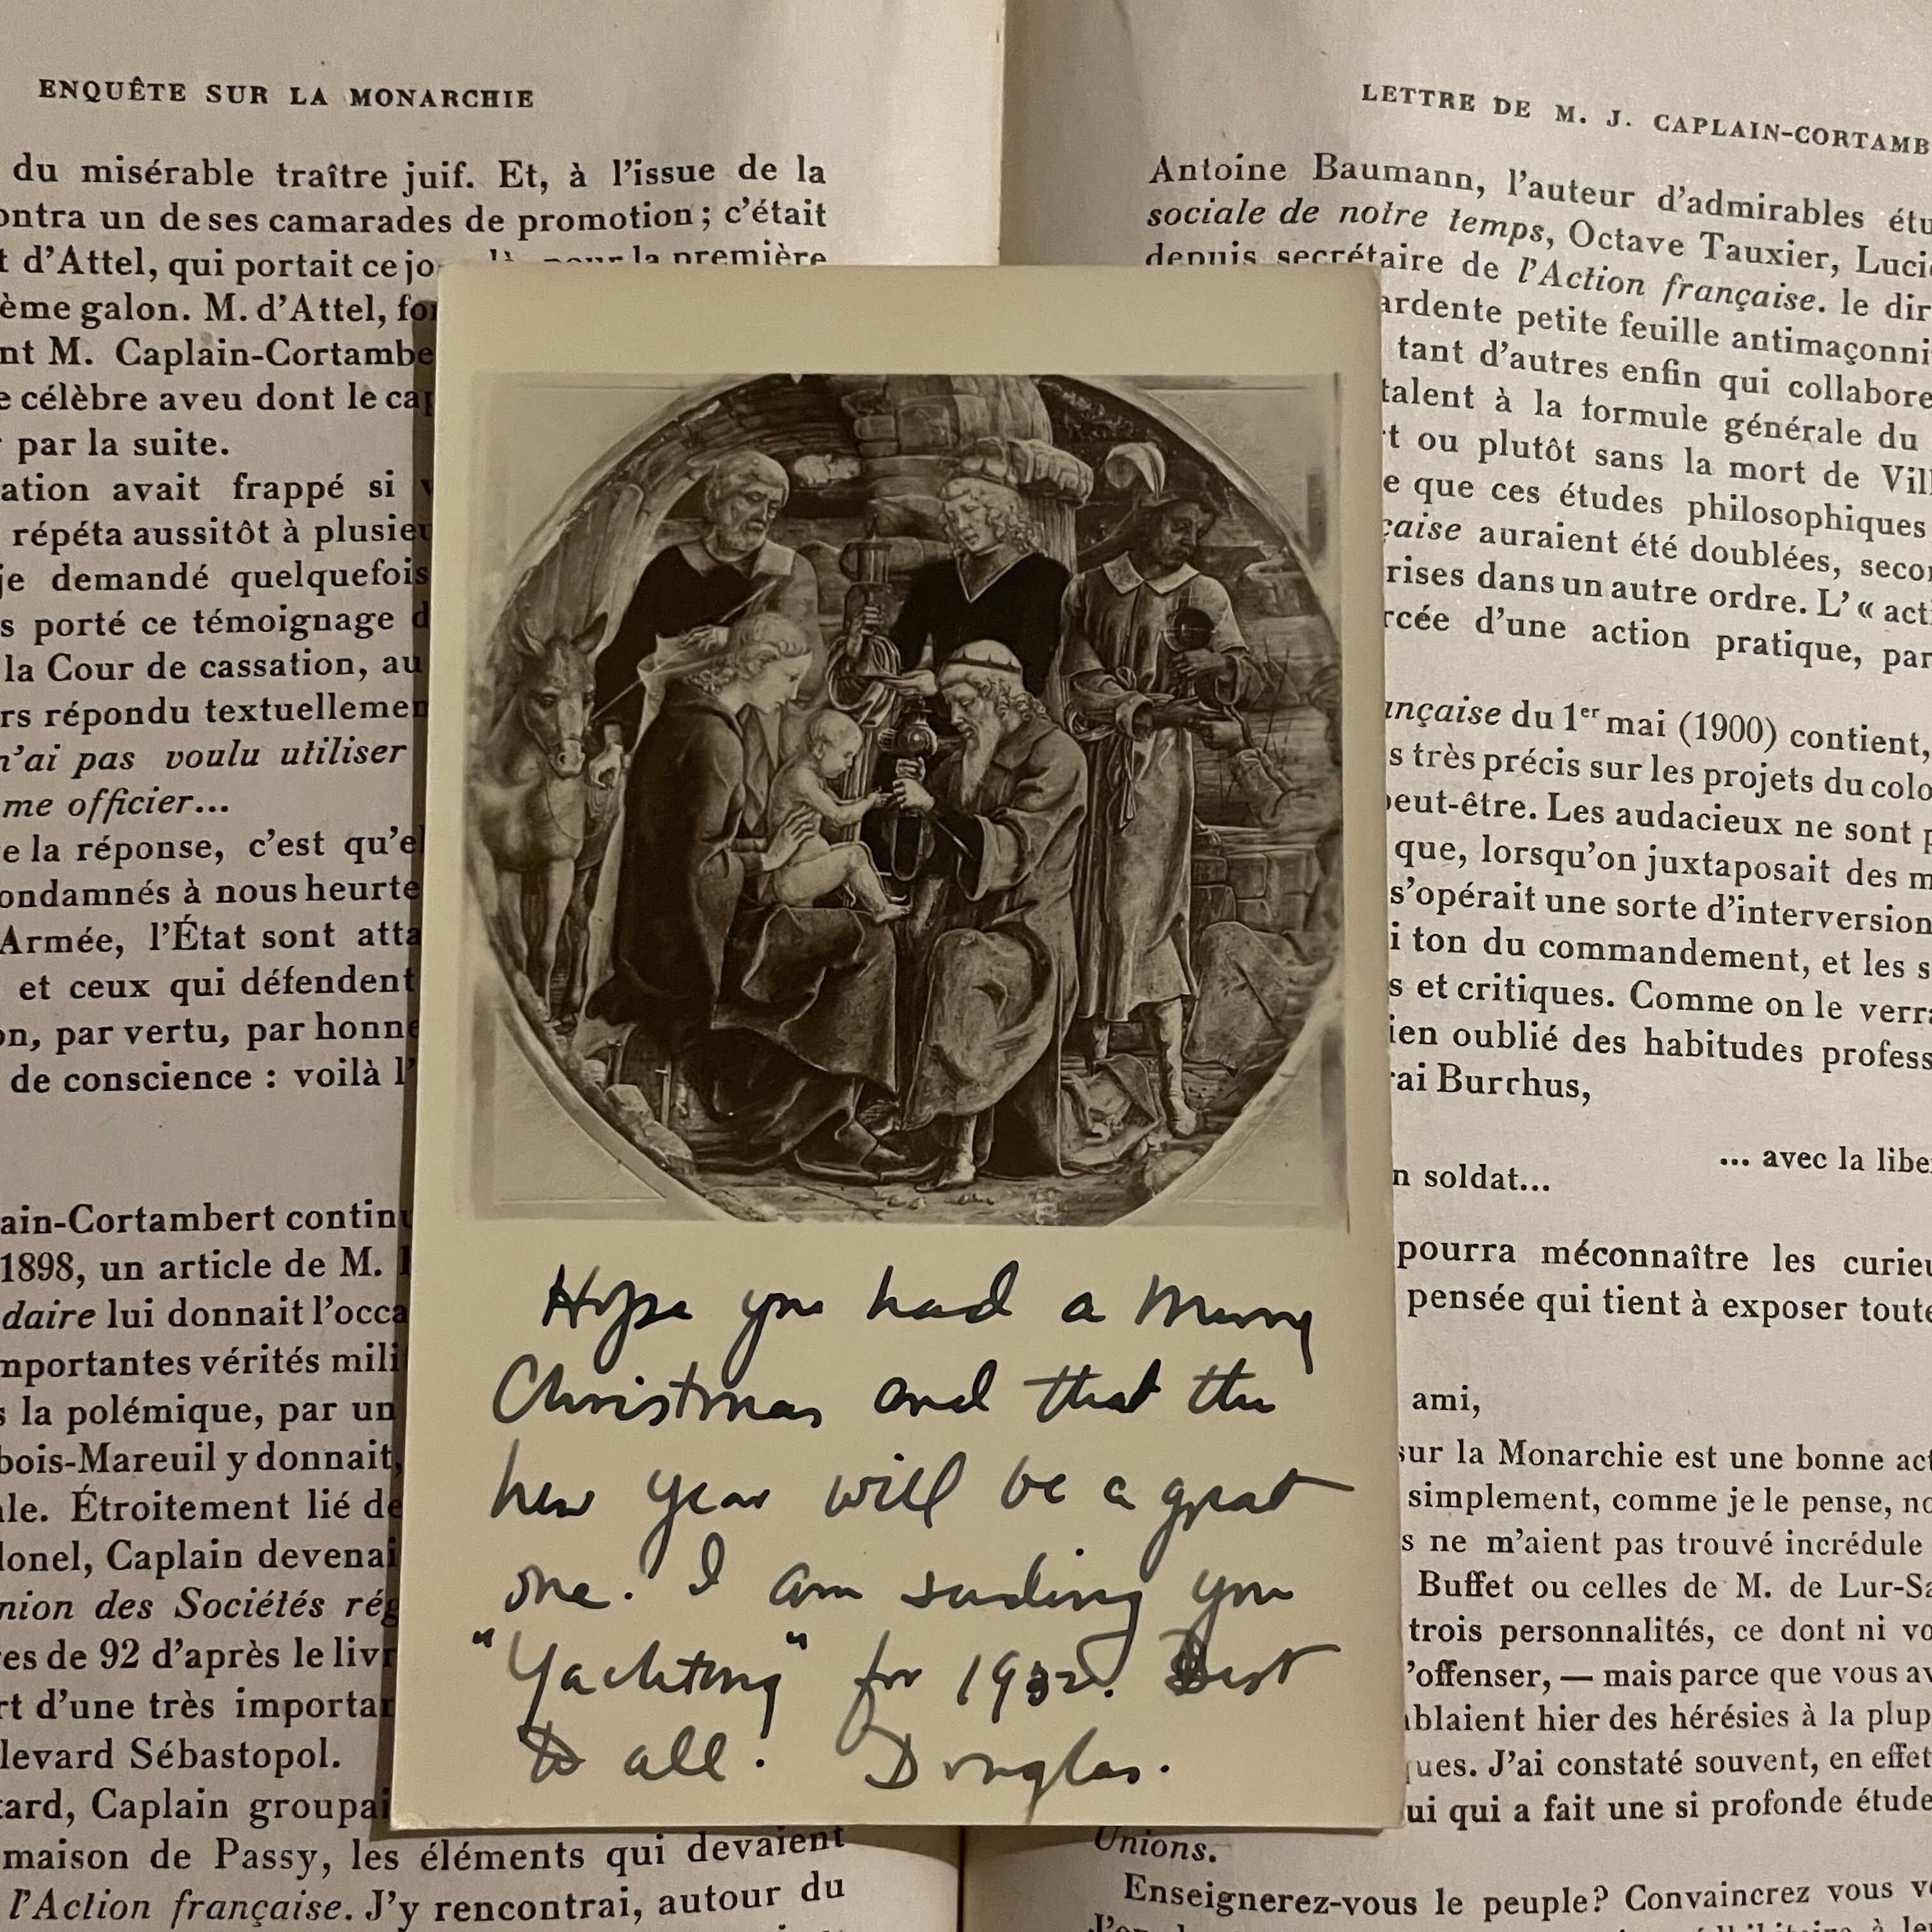 ENQUÊTE SUR LA MONARCHIE
du misérable traître juif. Et, à l'issue de la
ontra un de ses camarades de promotion ; c'était
t d'Attel, qui portait ce jo là pour la première
ème galon. M. d'Attel, for
nt M. Caplain-Cortambe
e célèbre aveu dont le cap
par la suite.
ation avait frappé si v
répéta aussitôt à plusieu
je demandé quelquefois
s porté ce témoignage d
la Cour de cassation, au
rs répondu textuellemen
n'ai pas voulu utiliser
me officier...
e la réponse, c'est qu'el
ondamnés à nous heurte
Armée, l'État sont atta
et ceux qui défendent
on, par vertu, par honne
de conscience : voilà l'
ain-Cortambert continu
1898, un article de M.
daire lui donnait l'occa
mportantes vérités mili
s la polémique, par un
bois-Mareuil y donnait,
ale. Étroitement lié de
lonel, Caplain devenai
nion des Sociétés rég
res de 92 d'après le livr
rt d'une très importan
levard Sébastopol.
tard, Caplain groupai
maison de Passy, les éléments qui devaient
l'Action française. J'y rencontrai, autour du
Hope you had a Merry
Christmas and that the
new year will be a great
one. I am sending you
"Yachting" for 1932. Best
to all. Douglas.
LETTRE DE M. J. CAPLAIN-CORTAMB
Antoine Baumann, l'auteur d'admirables étu
sociale de notre temps, Octave Tauxier, Luci
depuis secrétaire de l'Action française. le dir
ardente petite feuille antimaçonni
tant d'autres enfin qui collabore
talent à la formule générale du
t ou plutôt sans la mort de Vill
e que ces études philosophiques
çaise auraient été doublées, secon
rises dans un autre ordre. L' « acti
rcée d'une action pratique, par
ançaise du 1er mai (1900) contient,
s très précis sur les projets du colo
peut-être. Les audacieux ne sont p
que, lorsqu'on juxtaposait des m
s'opérait une sorte d'interversion
i ton du commandement, et les s
s et critiques. Comme on le verra
ien oublié des habitudes profess
rai Burrhus,
... avec la liber
n soldat...
pourra méconnaître les curieu
pensée qui tient à exposer toute
ami,
sur la Monarchie est une bonne act
simplement, comme je le pense, no
s ne m'aient pas trouvé incrédule
Buffet ou celles de M. de Lur-Sa
trois personnalités, ce dont ni vo
'offenser, — mais parce que vous av
blaient hier des hérésies à la plup
ques. J'ai constaté souvent, en effet
ui qui a fait une si profonde étude
Unions.
Enseignerez-vous le peuple? Convaincrez vous v